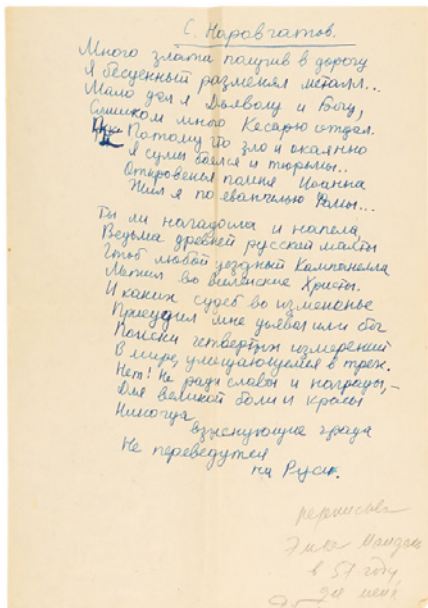 С. Наровчатов.
Много злата получив в дорогу
Я бесценный разменял металл...
Мало дал я Дьяволу и Богу,
Слишком много Кесарю отдал.
Потому что зло и окаянно
Я сумы боялся и тюрьмы..
Откровенья помня Иоанна
Жил я по евангелью Фомы...
Ты ли нагадала и напела
Ведьма древней русской маяты
Чтоб любой уездный Кампанелла
Метил во вселенские Христы.
И каких судеб во измененье
Присудил мне дьявол или бог
Поиски четвертых измерений
В мире, умещающемся в трех.
Нет! Не ради славы и награды,-
Для великой боли и красы
Никогда
взыскующие града
Не переведутся
на Руси.
в 57 году
для меня